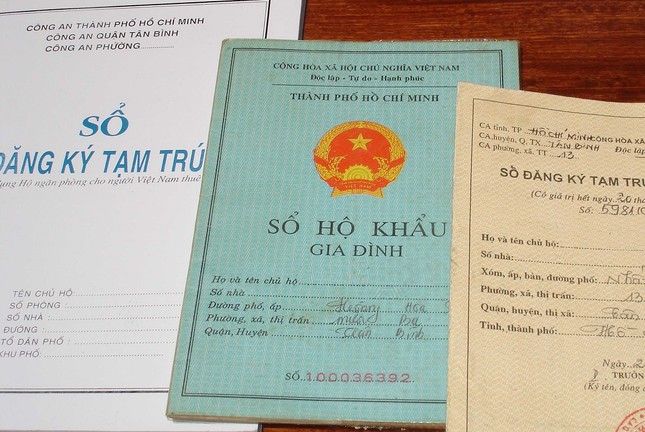 CÔNG AN THÀNH PHỐ HỒ CHÍ MINH
CÔNG AN QUẬN TÂN BÌNH
CÔNG AN PHƯỜNG:
SỔ
ĐĂNG KÝ TẠM TRÚ
Hộ ngăn phòng cho người Việt Nam thuê
TÊN CHỦ HỘ
SỐ PHÒNG
SỐ NHÀ
ĐƯỜNG
TỔ DÂN PHỐ
KHU PHỐ
CỘNG HÒA XÃ HỘI CHỦ NGHĨA VIỆT NAM
Độc lập - Tự do - Hạnh phúc
THÀNH PHỐ HỒ CHÍ MINH
VIỆT NAM
SỔ HỘ KHẨU
GIA ĐÌNH
Họ và tên chủ hộ
Số nhà
Đường phố, ấp Hoa
Phường, xã, thị trấn
Quận, Huyện
SỐ 100036392
CA tỉnh, TP HỒ CHÍ MINH CỘNG HÒA X
CA huyện, Q, TX TÂN BÌNH Độc lập
CA phường, xã, TT 13
SỔ ĐĂNG KÝ TẠM TRÚ
(Có giá trị hết ngày 20 thá
Số: 5981
Họ và tên chủ hộ:
Số nhà:
Xóm, ấp, bản, đường phố:
Phường, xã, thị trấn: 13
Quận, huyện, thị xã:
Tỉnh, thành phố:
Ngày 2
TRƯỞN
(Ký tên, đóng